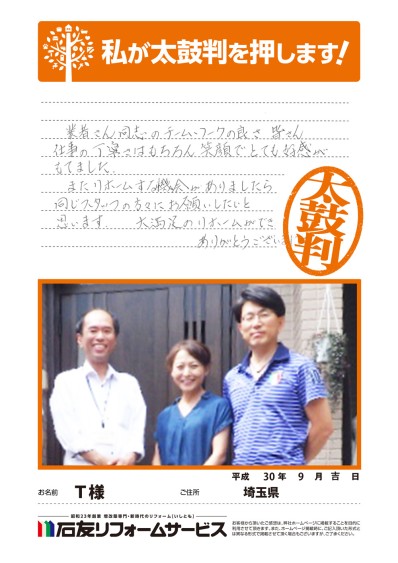 私が太鼓判を押します!
業者さん同志のチームワークの良さ 皆さん
仕事の丁寧さはもちろん 笑顔でとても好感が
もてました。
またリホームする機会がありましたら
同じスタッフの方々にお願いしたいと
思います。 大満足のリホームができ
ありがとうござい
太鼓判
平成 30年 9月 吉日
お名前 T様 ご住所 埼玉県
昭和23年創業 増改築専門・新時代のリフォーム(いしとも)
石友リフォームサービス
お客様から頂いたご感想は、弊社ホームページに掲載することを目的に
利用させて頂きます。また、ホームページ掲載時に、ご記入頂いた形式と
は異なる形式で掲載させて頂く場合もございますが、ご了承ください。